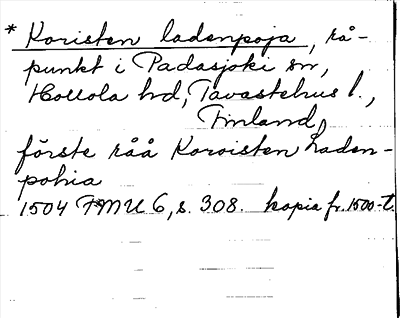 * Koristen ladenpoja, rå-
punkt i Padasjoki sn,
Hollola hd, Tavastehus l.,
Finland,
förste råå Koroisten laden-
pohia
1504 FMU 6, s. 308. kopia fr. 1500-t.